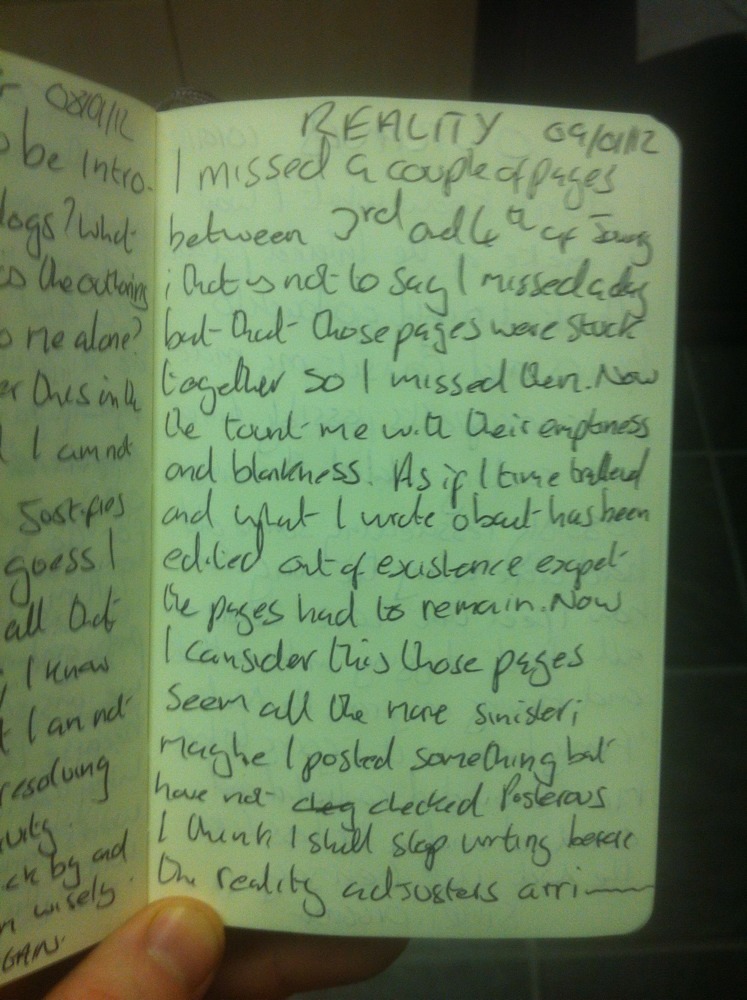 08/01/12
be Intro-
logs? What
is the outlying
me alone?
er this in the
I am not
Justifies
guess I
all that
I know
I am not
resolving
ck by and
wisely.
GAIN.
REALITY 09/01/12
I missed a couple of pages
between 3rd and 4th of Jany
; that is not to say I missed a day
but that those pages were stuck
together so I missed them. Now
the taunt me with their emptoness
and blankness. As if I time travelled
and what I wrote about has been
edited out of existence except
the pages had to remain. Now
I consider this those pages
seem all the more sinister;
maybe I posted something but
have not checked Posterous
I think I shall stop writing before
the reality adjusters arri